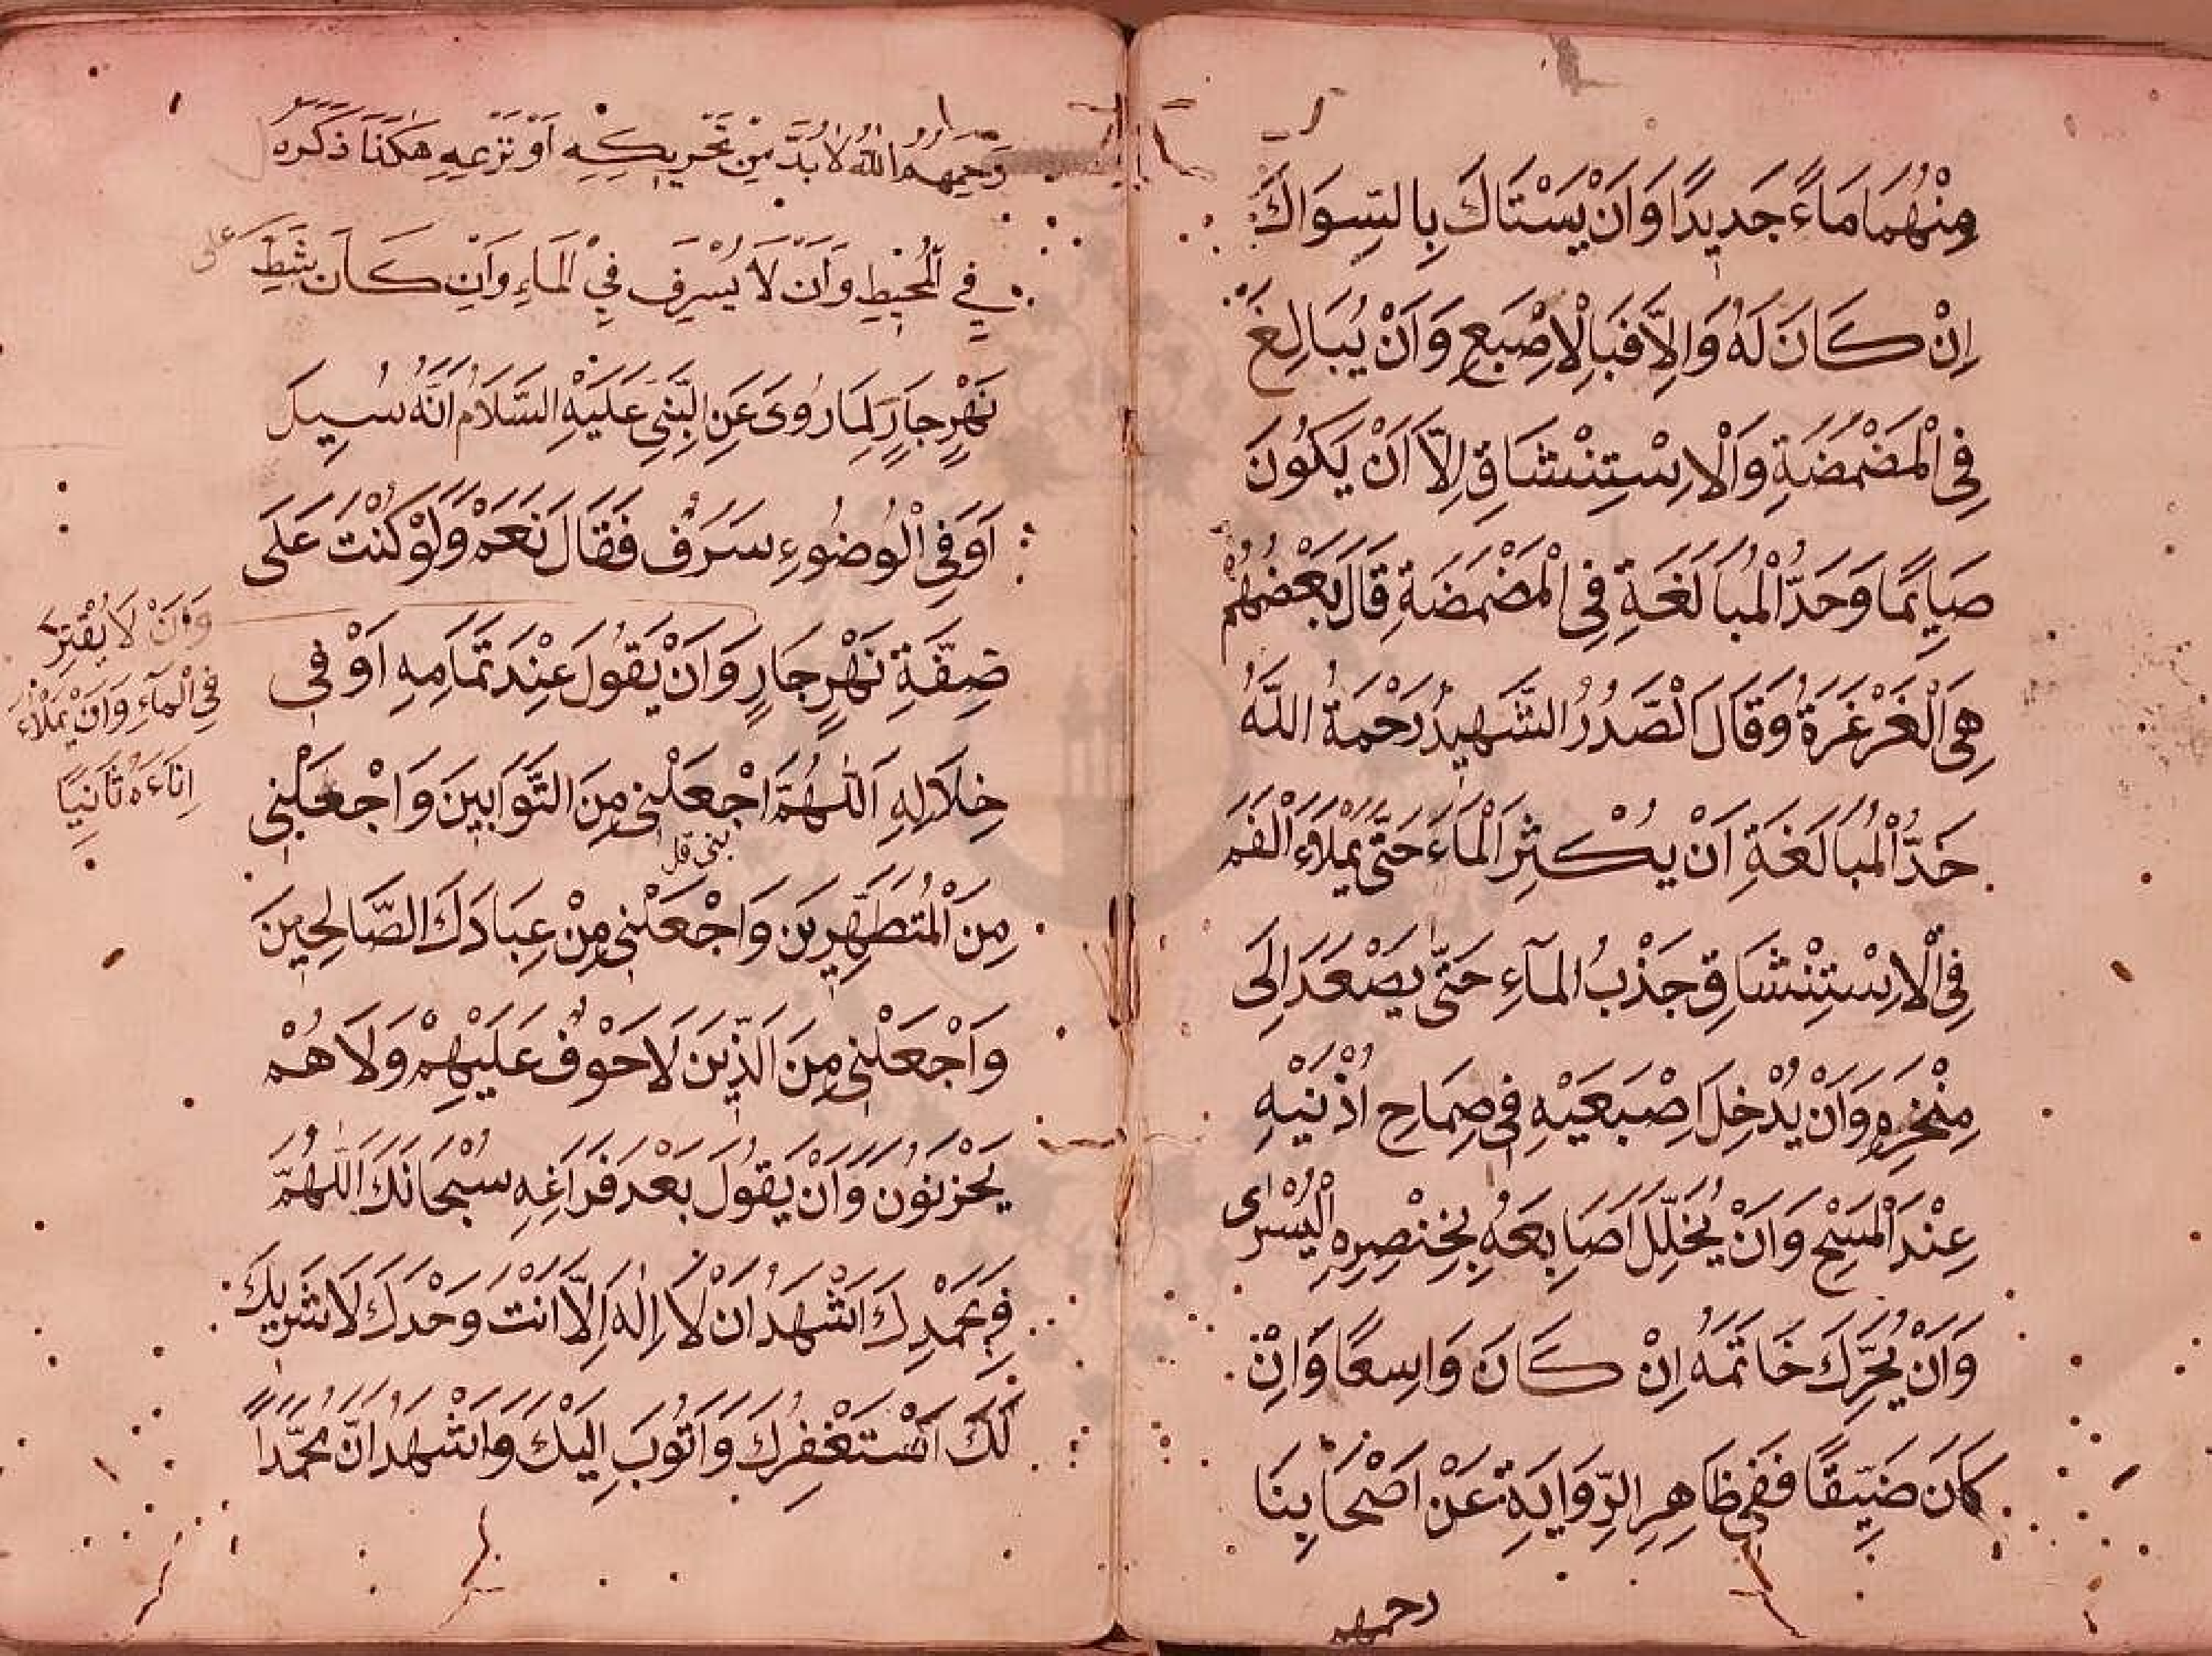 مِنْهُمَا مَاءً جَدِيدًا وَاَنْ يَسْتَاكَ بِالسِّوَاكِ
اِنْ كَانَ لَهُ وَاِلَّا فَبِالْاِصْبَعِ وَاَنْ يُبَالِغَ
فِى الْمَضْمَضَةِ وَالْاِسْتِنْشَاقِ اِلَّا اَنْ يَكُونَ
صَايِمًا وَحَدُّ الْمُبَالَغَةِ فِى الْمَضْمَضَةِ قَالَ بَعْضُهُمْ
هِىَ الْغَرْغَرَةُ وَقَالَ الصَّدْرُ الشَّهِيدُ رَحْمَةُ اللّٰهُ
حَدُّ الْمُبَالَغَةِ اَنْ يُكْثِرَ الْمَاءَ حَتَّى يَمْلَاءَ الْفَمَ
فِى الْاِسْتِنْشَاقِ جَذْبُ الْمَآءِ حَتَّى يَصْعَدَ اِلَى
مِنْخِرِهِ وَاَنْ يُدْخِلَ اِصْبَعَيْهِ فِى صِمَاحِ اُذْنَيْهِ
عِنْدَ الْمَسْحِ وَاَنْ يُخَلِّلَ اَصَابِعَهُ بِخِنْصِرِهِ الْيُسْرٰى
وَاَنْ يُحَرِّكَ خَاتَمَهُ اِنْ كَانَ وَاسِعًا وَاِنْ
كَانَ ضَيِّقًا فَفِى ظَاهِرِ الرِّوَايَةِ عَنْ اَصْحَابِنَا
رحمهم
رَحِمَهُمُ اللّٰهُ لَا بُدَّ مِنْ تَحْرِيكِهِ اَوْ نَزْعِهِ هٰكَذَا ذَكَرَهُ
فِي الْمُحِيْطِ وَاَنْ لَا يُسْرِفَ فِي الْمَاءِ وَاِنْ كَانَ بِشَطِّ
على
نَهْرٍ جَارٍ لِمَا رُوِىَ عَنِ النَّبِيِّ عَلَيْهِ السَّلَامُ اَنَّهُ سُيِلَ
اَوَفِى الْوُضُوءِ سَرَفٌ فَقَالَ نَعَمْ وَلَوْ كُنْتَ عَلَى
ضِفَّةِ نَهْرٍ جَارٍ وَاَنْ يَقُولَ عِنْدَ تَمَامِهِ اَوْ فِى
وَاَنْ لَا يُقْتِرَ
فِى الْمَآءِ وَاَنْ يَمْلَاءَ
اِنَاءَهُ ثَانِيًا
خِلَالِهِ اَللّٰهُمَّ اجْعَلْنِى مِنَ التَّوَّابِينَ وَاجْعَلْنِى
مِنَ الْمُتَطَهِّرِينَ وَاجْعَلْنِى مِنْ عِبَادِكَ الصَّالِحِينَ
وَاجْعَلْنِى مِنَ الَّذِينَ لَا خَوْفٌ عَلَيْهِمْ وَلَا هُمْ
يَحْزَنُونَ وَاَنْ يَقُولَ بَعْدَ فَرَاغِهِ سُبْحَانَكَ اللّٰهُمَّ
وَبِحَمْدِكَ اَشْهَدُ اَنْ لَا اِلٰهَ اِلَّا اَنْتَ وَحْدَكَ لَا شَرِيكَ
لَكَ اَسْتَغْفِرُكَ وَاَتُوبُ اِلَيْكَ وَاَشْهَدُ اَنَّ مُحَمَّدًا